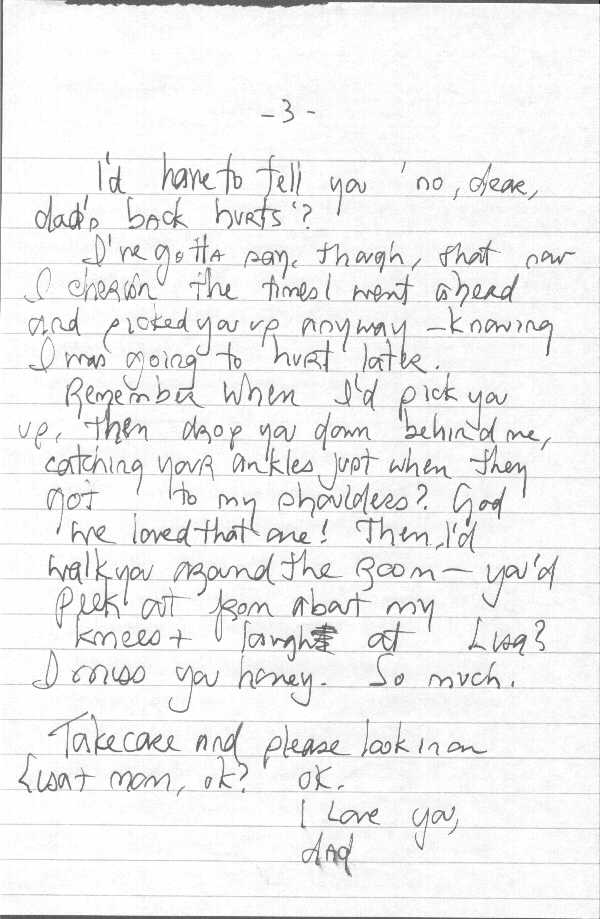 -3-
I'd have to tell you 'no, dear,
dad's back hurts'?
I've gotta say, though, that now
I cherish the times I went ahead
and picked you up anyway - knowing
I was going to hurt later.
Remember when I'd pick you
up, then drop you down behind me,
catching your ankles just when they
got to my shoulders? God
we loved that one! Then, I'd
walk you around the room - you'd
peek out from about my
knees + laugh at Lisa?
I miss you honey. So much.
Take care and please look in on
Lisa + mom, ok? ok.
I Love you,
dad